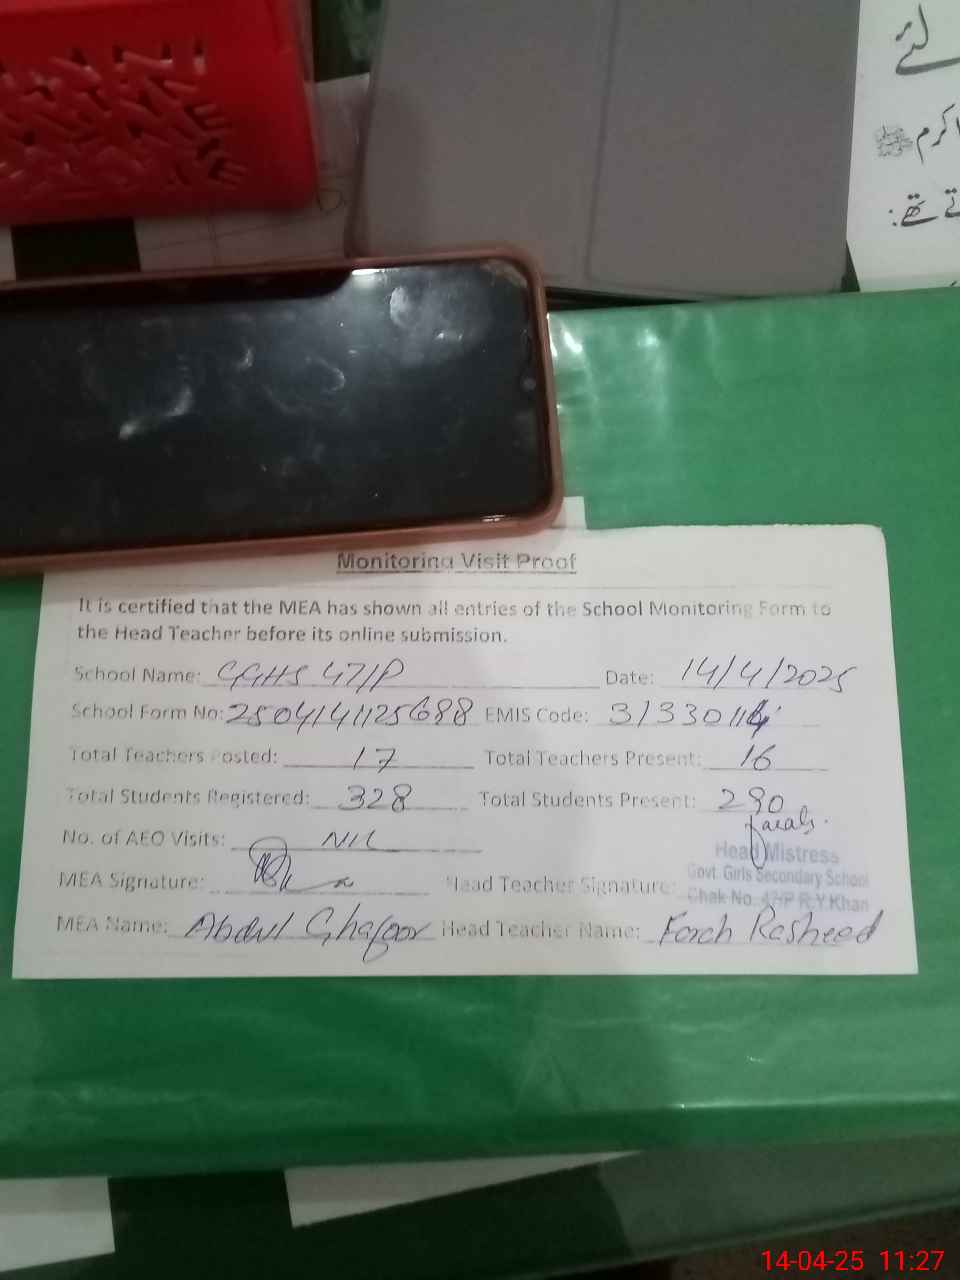 لئے
اکرم ﷺ
تے تھے:
Monitoring Visit Proof
It is certified that the MEA has shown all entries of the School Monitoring Form to
the Head Teacher before its online submission.
School Name: GGHS 47/P Date: 14/4/2025
School Form No: 2504141125688 EMIS Code: 31330114
Total Teachers Posted: 17 Total Teachers Present: 16
Total Students Registered: 328 Total Students Present: 290
No. of AEO Visits: NIL
Head Mistress
Govt. Girls Secondary School
Chak No. 47/P R.Y.Khan
MEA Signature: Head Teacher Signature:
MEA Name: Abdul Ghafoor Head Teacher Name: Farah Rasheed
14-04-25 11:27